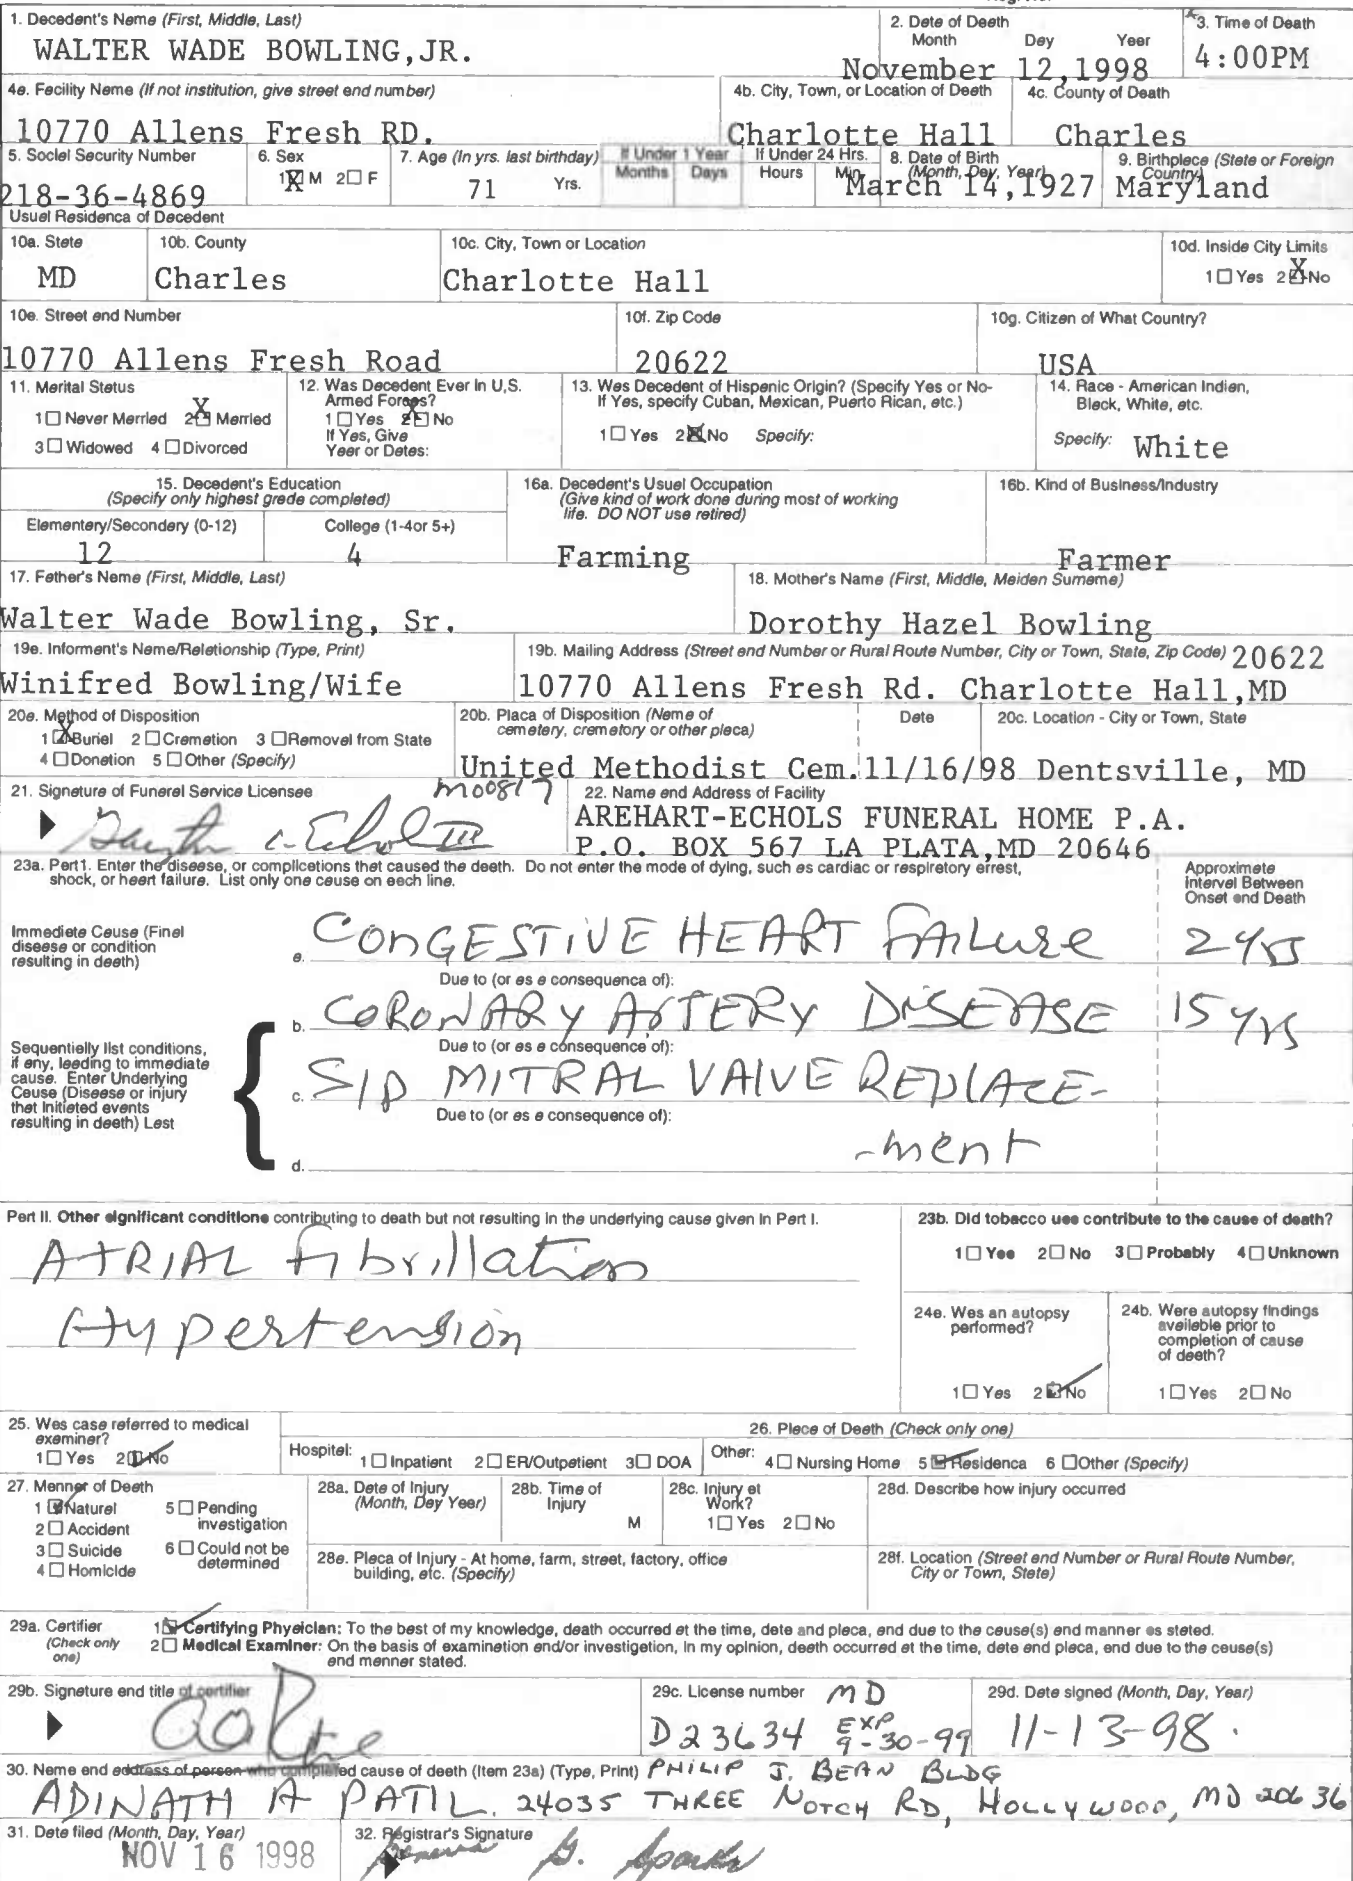 1. Decedent's Name (First, Middle, Last)
WALTER WADE BOWLING,JR.
2. Date of Death
Month Day Year
November 12,1998
3. Time of Death
4:00PM
4a. Facility Name (If not institution, give street and number)
10770 Allens Fresh RD.
4b. City, Town, or Location of Death
Charlotte Hall
4c. County of Death
Charles
5. Social Security Number
218-36-4869
6. Sex
1☒ M 2☐ F
7. Age (In yrs. last birthday)
71 Yrs.
If Under 1 Year
Months Days
If Under 24 Hrs.
Hours Min.
8. Date of Birth
(Month, Day, Year)
March 14,1927
9. Birthplace (State or Foreign
Country)
Maryland
Usual Residence of Decedent
10a. State
MD
10b. County
Charles
10c. City, Town or Location
Charlotte Hall
10d. Inside City Limits
1☐ Yes 2☒ No
10e. Street and Number
10770 Allens Fresh Road
10f. Zip Code
20622
10g. Citizen of What Country?
USA
11. Marital Status
1☐ Never Married 2☒ Married
3☐ Widowed 4☐ Divorced
12. Was Decedent Ever in U.S.
Armed Forces?
1☐ Yes 2☒ No
If Yes, Give
Year or Dates:
13. Was Decedent of Hispanic Origin? (Specify Yes or No-
If Yes, specify Cuban, Mexican, Puerto Rican, etc.)
1☐ Yes 2☒ No Specify:
14. Race - American Indian,
Black, White, etc.
Specify: White
15. Decedent's Education
(Specify only highest grade completed)
Elementary/Secondary (0-12)
12
College (1-4or 5+)
4
16a. Decedent's Usual Occupation
(Give kind of work done during most of working
life. DO NOT use retired)
Farming
16b. Kind of Business/Industry
Farmer
17. Father's Name (First, Middle, Last)
Walter Wade Bowling, Sr.
18. Mother's Name (First, Middle, Maiden Surname)
Dorothy Hazel Bowling
19a. Informant's Name/Relationship (Type, Print)
Winifred Bowling/Wife
19b. Mailing Address (Street and Number or Rural Route Number, City or Town, State, Zip Code) 20622
10770 Allens Fresh Rd. Charlotte Hall,MD
20a. Method of Disposition
1☒ Burial 2☐ Cremation 3☐ Removal from State
4☐ Donation 5☐ Other (Specify)
20b. Place of Disposition (Name of
cemetery, crematory or other place)
United Methodist Cem.
Date
11/16/98
20c. Location - City or Town, State
Dentsville, MD
21. Signature of Funeral Service Licensee
M00817
22. Name and Address of Facility
AREHART-ECHOLS FUNERAL HOME P.A.
P.O. BOX 567 LA PLATA,MD 20646
23a. Part1. Enter the disease, or complications that caused the death. Do not enter the mode of dying, such as cardiac or respiratory arrest,
shock, or heart failure. List only one cause on each line.
Approximate
Interval Between
Onset and Death
Immediate Cause (Final
disease or condition
resulting in death)
a. CONGESTIVE HEART FAILURE 2 yrs
Due to (or as a consequence of):
b. CORONARY ARTERY DISEASE 15 yrs
Due to (or as a consequence of):
Sequentially list conditions,
if any, leading to immediate
cause. Enter Underlying
Cause (Disease or injury
that initiated events
resulting in death) Last
c. S/P MITRAL VALVE REPLACE-
Due to (or as a consequence of):
-ment
d.
Part II. Other significant conditions contributing to death but not resulting in the underlying cause given in Part I.
ATRIAL fibrillation
Hypertension
23b. Did tobacco use contribute to the cause of death?
1☐ Yes 2☐ No 3☐ Probably 4☐ Unknown
24a. Was an autopsy
performed?
1☐ Yes 2☑ No
24b. Were autopsy findings
available prior to
completion of cause
of death?
1☐ Yes 2☐ No
25. Was case referred to medical
examiner?
1☐ Yes 2☑ No
26. Place of Death (Check only one)
Hospital: 1☐ Inpatient 2☐ ER/Outpatient 3☐ DOA Other: 4☐ Nursing Home 5☑ Residence 6☐ Other (Specify)
27. Manner of Death
1☑ Natural 5☐ Pending
investigation
2☐ Accident
3☐ Suicide 6☐ Could not be
determined
4☐ Homicide
28a. Date of Injury
(Month, Day Year)
28b. Time of
Injury
M
28c. Injury at
Work?
1☐ Yes 2☐ No
28d. Describe how injury occurred
28e. Place of Injury - At home, farm, street, factory, office
building, etc. (Specify)
28f. Location (Street and Number or Rural Route Number,
City or Town, State)
29a. Certifier
(Check only
one)
1☑ Certifying Physician: To the best of my knowledge, death occurred at the time, date and place, and due to the cause(s) and manner as stated.
2☐ Medical Examiner: On the basis of examination and/or investigation, in my opinion, death occurred at the time, date and place, and due to the cause(s)
and manner stated.
29b. Signature and title of certifier
29c. License number MD
D23634 EXP 9-30-99
29d. Date signed (Month, Day, Year)
11-13-98.
30. Name and address of person who completed cause of death (Item 23a) (Type, Print) PHILIP J. BEAN BLDG
ADINATH A PATIL. 24035 THREE NOTCH RD, HOLLYWOOD, MD 20636
31. Date filed (Month, Day, Year)
NOV 16 1998
32. Registrar's Signature
G. Sparks